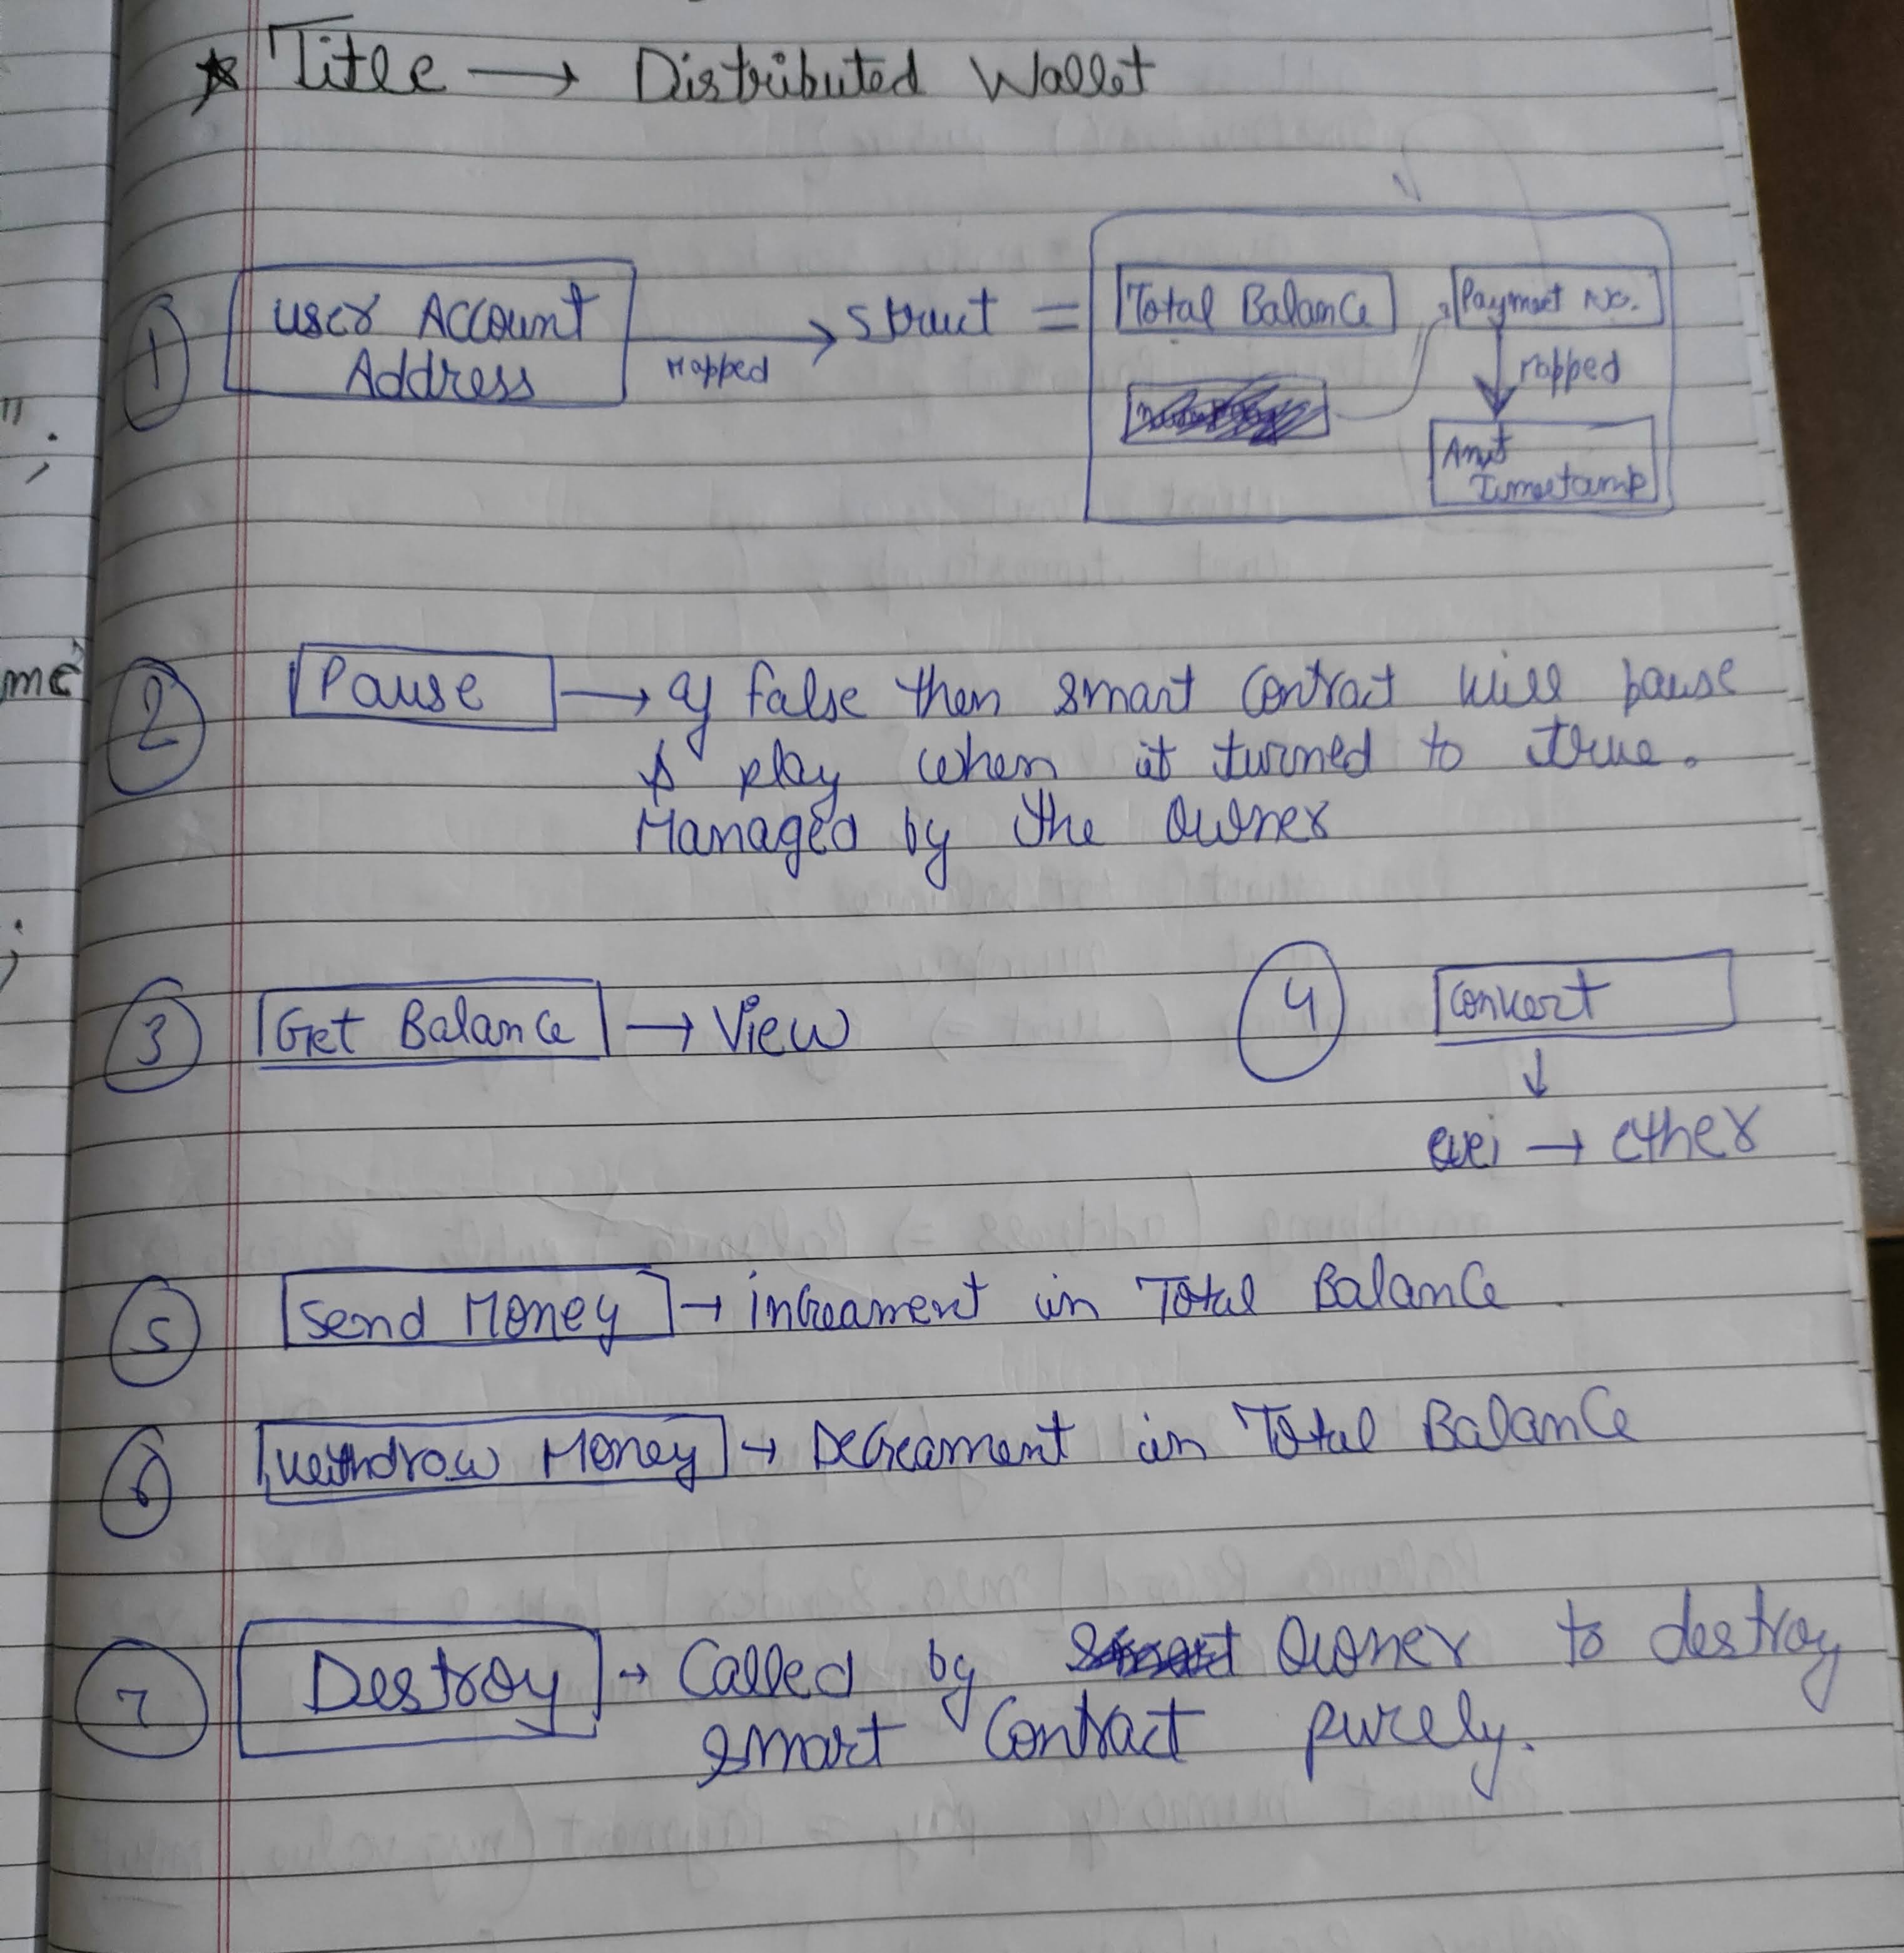 ★ Title → Distributed Wallet
① User Account Address
Mapped → struct =
Total Balance
Payment No.
mapped
Amt
Timestamp
② Pause → If false then smart contract will pause
& play when it turned to true.
Managed by the Owner
③ Get Balance → View
④ Convert
↓
wei → ether
⑤ Send Money → increament in Total Balance
⑥ Withdraw Money → Decreament in Total Balance
⑦ Destroy → Called by Owner to destroy
smart Contract purely.